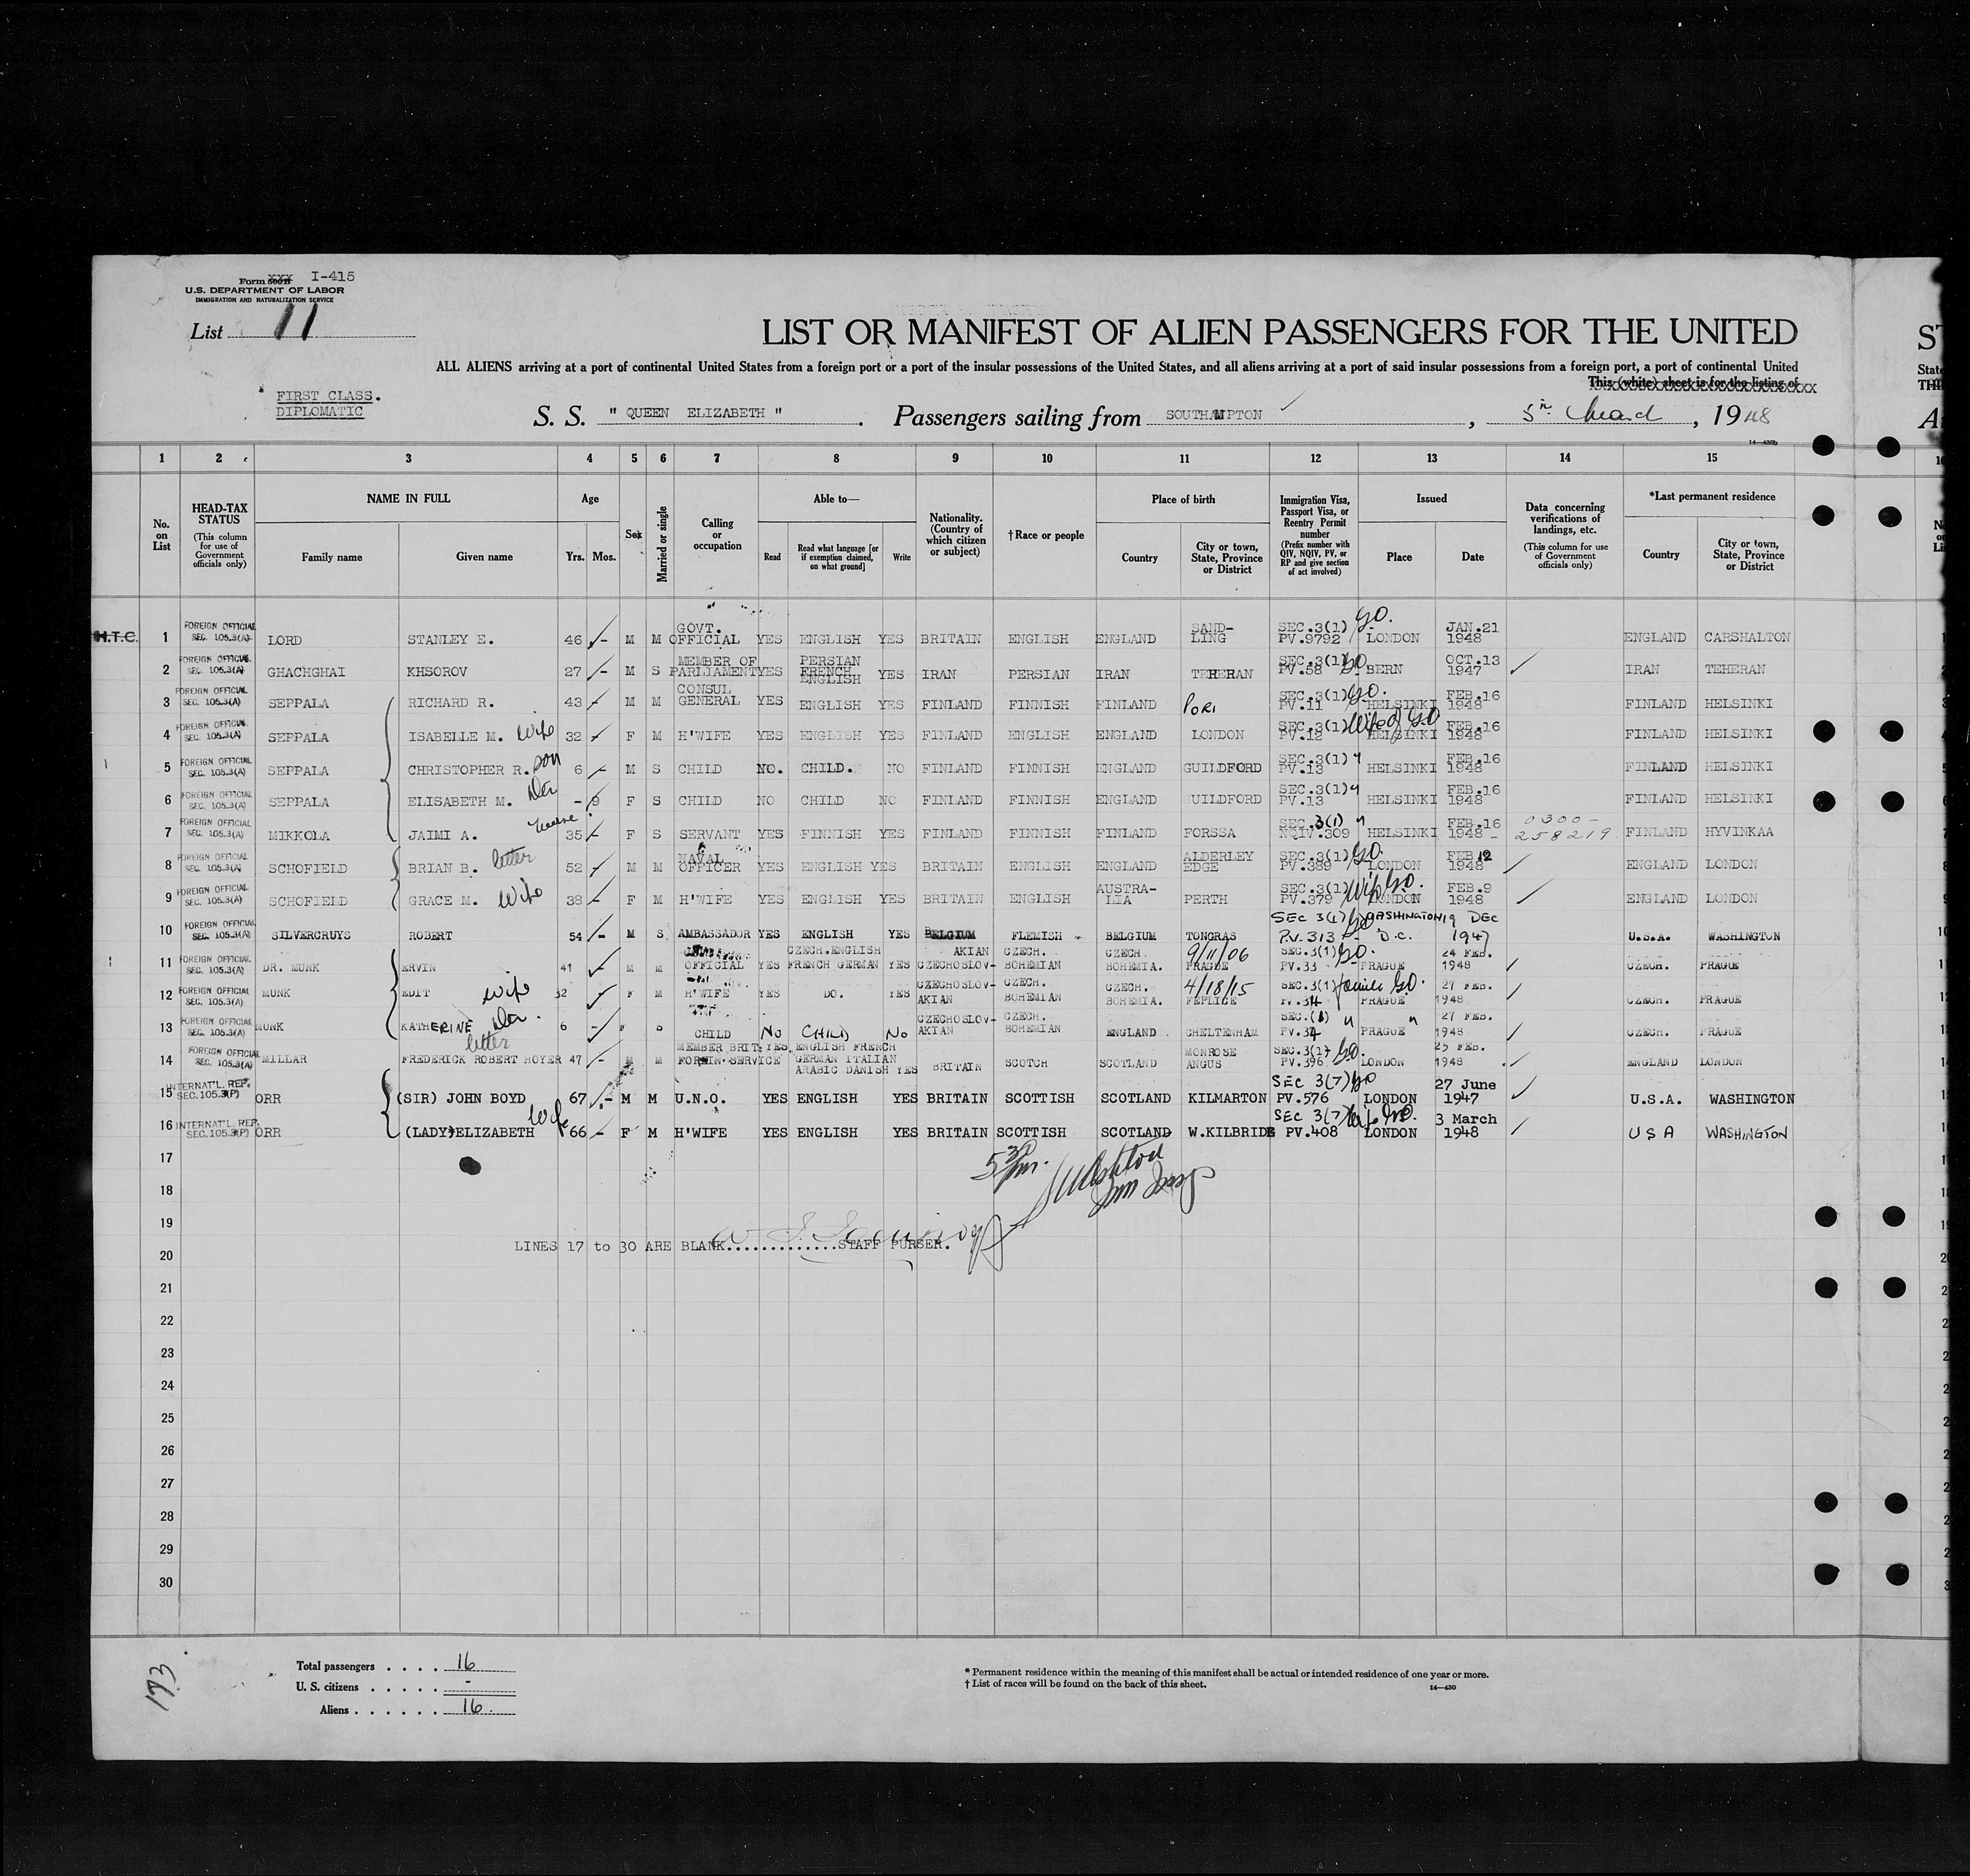 Form XXX I-415
U.S. DEPARTMENT OF LABOR
IMMIGRATION AND NATURALIZATION SERVICE
List 11
LIST OR MANIFEST OF ALIEN PASSENGERS FOR THE UNITED
ALL ALIENS arriving at a port of continental United States from a foreign port or a port of the insular possessions of the United States, and all aliens arriving at a port of said insular possessions from a foreign port, a port of continental United
This (white) sheet is for the listing of
FIRST CLASS.
DIPLOMATIC
S. S. " QUEEN ELIZABETH ". Passengers sailing from SOUTHAMPTON, 5th March, 1948
14—430b
1 2 3 4 5 6 7 8 9 10 11 12 13 14 15
No. on List
HEAD-TAX STATUS (This column for use of Government officials only)
NAME IN FULL Family name Given name
Age Yrs. Mos.
Sex
Married or single
Calling or occupation
Able to— Read Read what language [or if exemption claimed, on what ground] Write
Nationality. (Country of which citizen or subject)
†Race or people
Place of birth Country City or town, State, Province or District
Immigration Visa, Passport Visa, or Reentry Permit number (Prefix number with QIV, NQIV, PV, or RP and give section of act involved)
Issued Place Date
Data concerning verifications of landings, etc. (This column for use of Government officials only)
*Last permanent residence Country City or town, State, Province or District
H.T.C. 1 FOREIGN OFFICIAL SEC. 105.3(A) LORD STANLEY E. 46 - M M GOVT. OFFICIAL YES ENGLISH YES BRITAIN ENGLISH ENGLAND SAND-LING SEC.3(1) GO. PV.9792 LONDON JAN.21 1948 ENGLAND CARSHALTON
2 FOREIGN OFFICIAL SEC. 105.3(A) GHACHGHAI KHSOROV 27 - M S MEMBER OF PARLIAMENT YES PERSIAN FRENCH ENGLISH YES IRAN PERSIAN IRAN TEHERAN SEC.3(1) GO PV.58 BERN OCT.13 1947 IRAN TEHERAN
3 FOREIGN OFFICIAL SEC. 105.3(A) SEPPALA RICHARD R. 43 - M M CONSUL GENERAL YES ENGLISH YES FINLAND FINNISH FINLAND PORI SEC.3(1) GO. PV.11 HELSINKI FEB.16 1948 FINLAND HELSINKI
4 FOREIGN OFFICIAL SEC. 105.3(A) SEPPALA ISABELLE M. Wife 32 - F M H'WIFE YES ENGLISH YES FINLAND ENGLISH ENGLAND LONDON SEC.3(1) Wife of GO PV.12 HELSINKI FEB.16 1948 FINLAND HELSINKI
5 FOREIGN OFFICIAL SEC. 105.3(A) SEPPALA CHRISTOPHER R. son 6 - M S CHILD NO. CHILD. NO FINLAND FINNISH ENGLAND GUILDFORD SEC.3(1) " PV.13 HELSINKI FEB.16 1948 FINLAND HELSINKI
6 FOREIGN OFFICIAL SEC. 105.3(A) SEPPALA ELISABETH M. Dau - 9 F S CHILD NO CHILD NO FINLAND FINNISH ENGLAND GUILDFORD SEC.3(1) " PV.13 HELSINKI FEB.16 1948 FINLAND HELSINKI
7 FOREIGN OFFICIAL SEC. 105.3(A) MIKKOLA JAIMI A. nurse 35 - F S SERVANT YES FINNISH YES FINLAND FINNISH FINLAND FORSSA SEC.3(1) " NQIV.309 HELSINKI FEB.16 1948 0300-258219 FINLAND HYVINKAA
8 FOREIGN OFFICIAL SEC. 105.3(A) SCHOFIELD BRIAN B. letter 52 - M M NAVAL OFFICER YES ENGLISH YES BRITAIN ENGLISH ENGLAND ALDERLEY EDGE SEC.3(1) GO. PV.389 LONDON FEB 12 1948 ENGLAND LONDON
9 FOREIGN OFFICIAL SEC. 105.3(A) SCHOFIELD GRACE M. Wife 38 - F M H'WIFE YES ENGLISH YES BRITAIN ENGLISH AUSTRA-LIA PERTH SEC.3(1) Wife GO. PV.379 LONDON FEB.9 1948 ENGLAND LONDON
10 FOREIGN OFFICIAL SEC. 105.3(A) SILVERCRUYS ROBERT 54 - M S AMBASSADOR YES ENGLISH YES BELGIUM FLEMISH BELGIUM TONGRAS SEC 3(1) GO P.V. 313 WASHINGTON D.C. 19 DEC 1947 U.S.A. WASHINGTON
11 FOREIGN OFFICIAL SEC. 105.3(A) DR. MUNK ERVIN 41 M M OFFICIAL YES CZECH.ENGLISH FRENCH GERMAN YES CZECHOSLOV-AKIAN CZECH. BOHEMIAN CZECH. BOHEMIA. 9/11/06 PRAGUE SEC.3(1) GO. PV.33 PRAGUE 24 FEB. 1948 CZECH. PRAGUE
12 FOREIGN OFFICIAL SEC. 105.3(A) MUNK EDIT Wife 32 F M H'WIFE YES DO. YES CZECHOSLOV-AKIAN CZECH. BOHEMIAN CZECH. BOHEMIA. 4/18/15 FEPLICE SEC.3(1) family GO. PV.34 PRAGUE 27 FEB. 1948 CZECH. PRAGUE
13 FOREIGN OFFICIAL SEC. 105.3(A) MUNK KATHERINE Dau. 6 - F S CHILD No CHILD No CZECHOSLOV-AKIAN CZECH. BOHEMIAN ENGLAND CHELTENHAM SEC.(1) " PV.34 PRAGUE " 27 FEB. 1948 CZECH. PRAGUE
14 FOREIGN OFFICIAL SEC. 105.3(A) MILLAR FREDERICK ROBERT HOYER letter 47 - M M MEMBER BRIT. FOREIGN SERVICE YES ENGLISH FRENCH GERMAN ITALIAN ARABIC DANISH YES BRITAIN SCOTCH SCOTLAND MONROSE ANGUS SEC.3(1) GO. PV.396 LONDON 25 FEB. 1948 ENGLAND LONDON
15 INTERNAT'L. REP. SEC.105.3(P) ORR (SIR) JOHN BOYD 67 - M M U.N.O. YES ENGLISH YES BRITAIN SCOTTISH SCOTLAND KILMARTON SEC 3(7) GO PV.576 LONDON 27 June 1947 U.S.A. WASHINGTON
16 INTERNAT'L. REP. SEC.105.3(P) ORR (LADY) ELIZABETH Wife 66 - F M H'WIFE YES ENGLISH YES BRITAIN SCOTTISH SCOTLAND W.KILBRIDE SEC 3(7) Wife GO. PV.408 LONDON 3 March 1948 U S A WASHINGTON
17
5 30 pm.
18
19
LINES 17 to 30 ARE BLANK..............STAFF PURSER.
20
21
22
23
24
25
26
27
28
29
30
Total passengers . . . . 16
U. S. citizens . . . . . -
Aliens . . . . . . 16.
* Permanent residence within the meaning of this manifest shall be actual or intended residence of one year or more.
† List of races will be found on the back of this sheet.
14—430
173